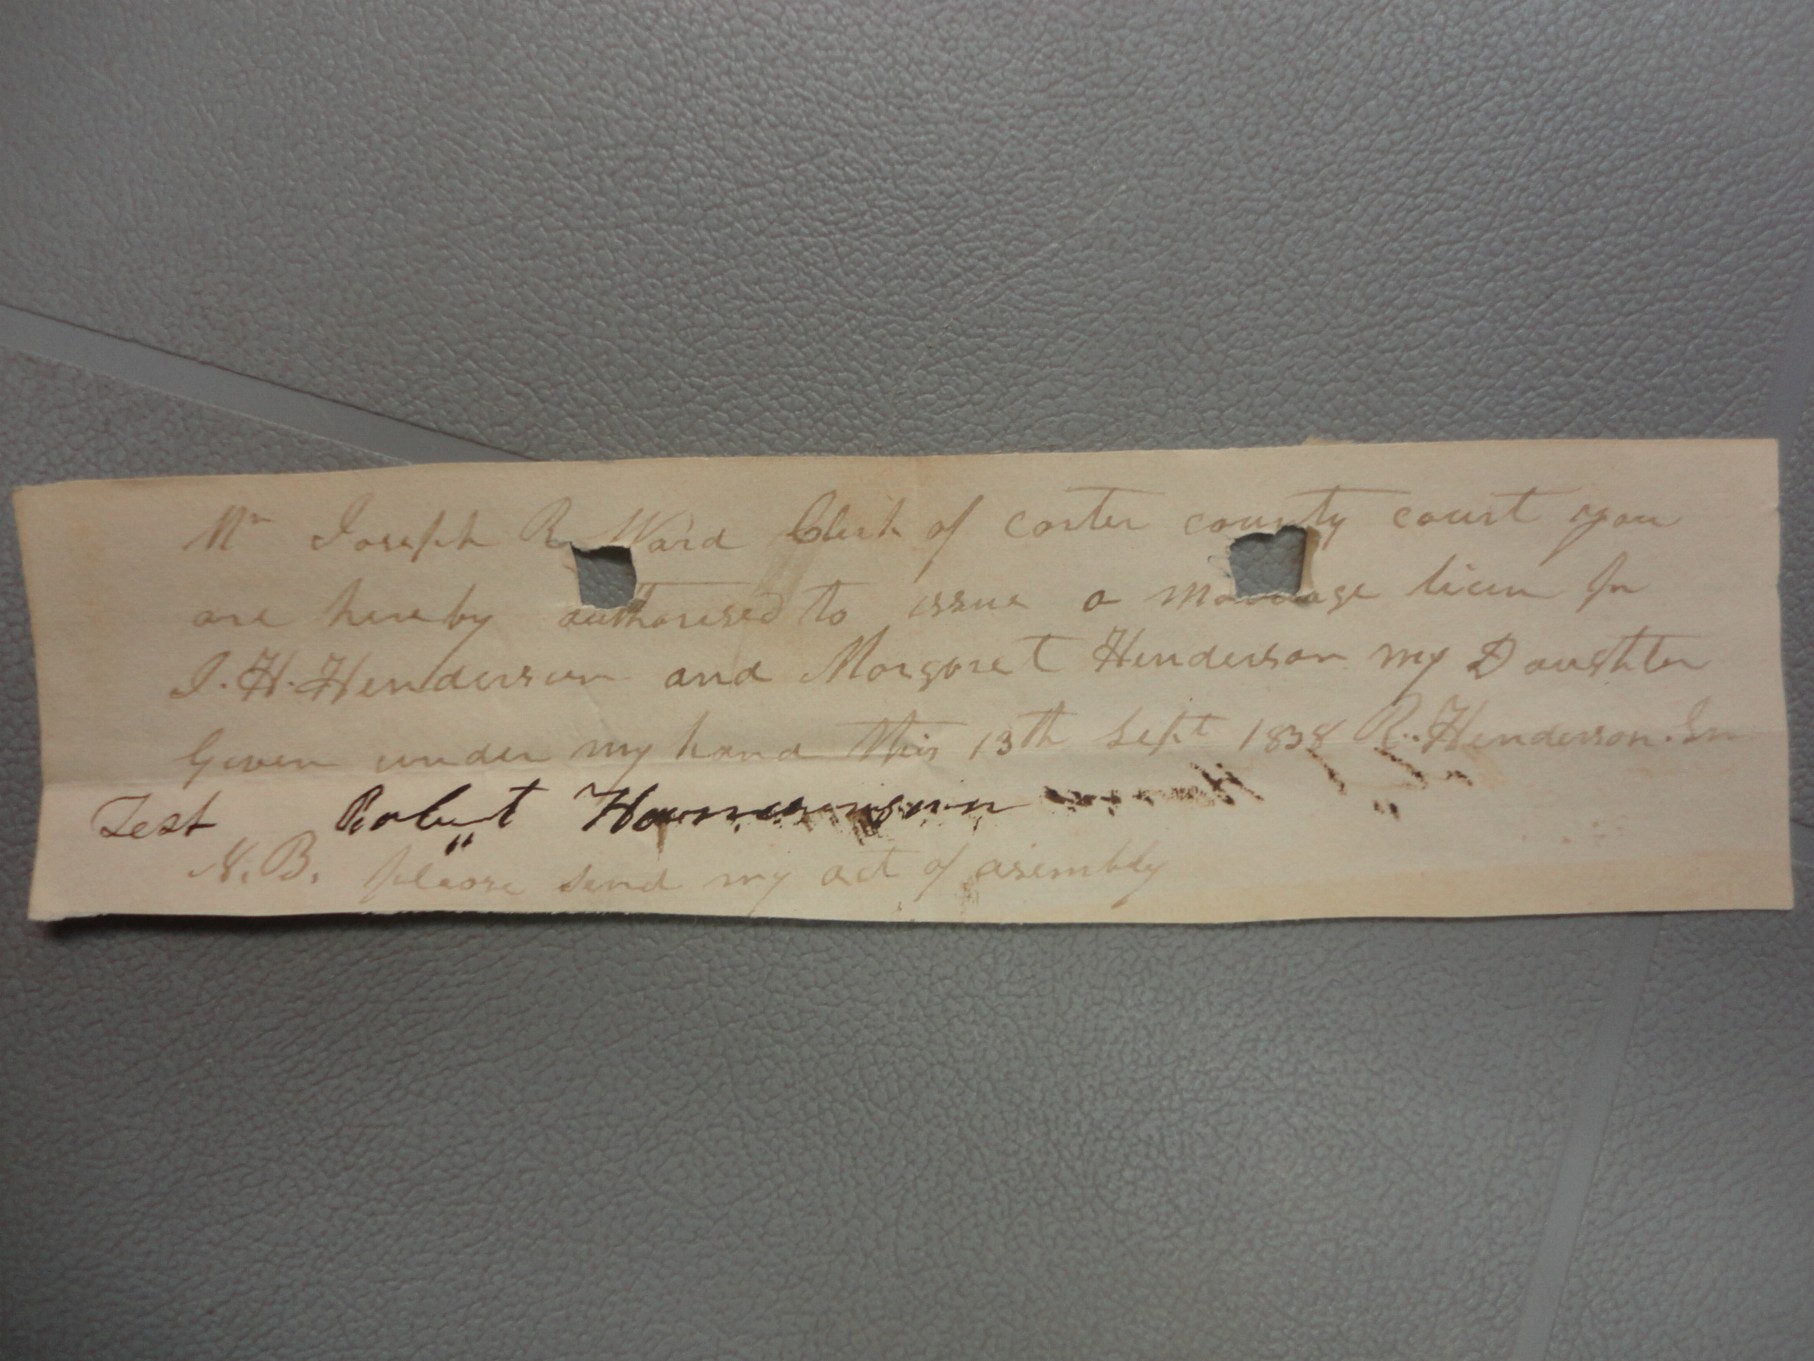 Mr Joseph R. Ward Clerk of Carter county court you
are hereby authorised to issue a marriage licen for
J. H. Henderson and Margaret Henderson my Daughter
Given under my hand this 13th Sept 1838 R. Henderson. Sn
Test Robert
N.B. please send my act of asembly